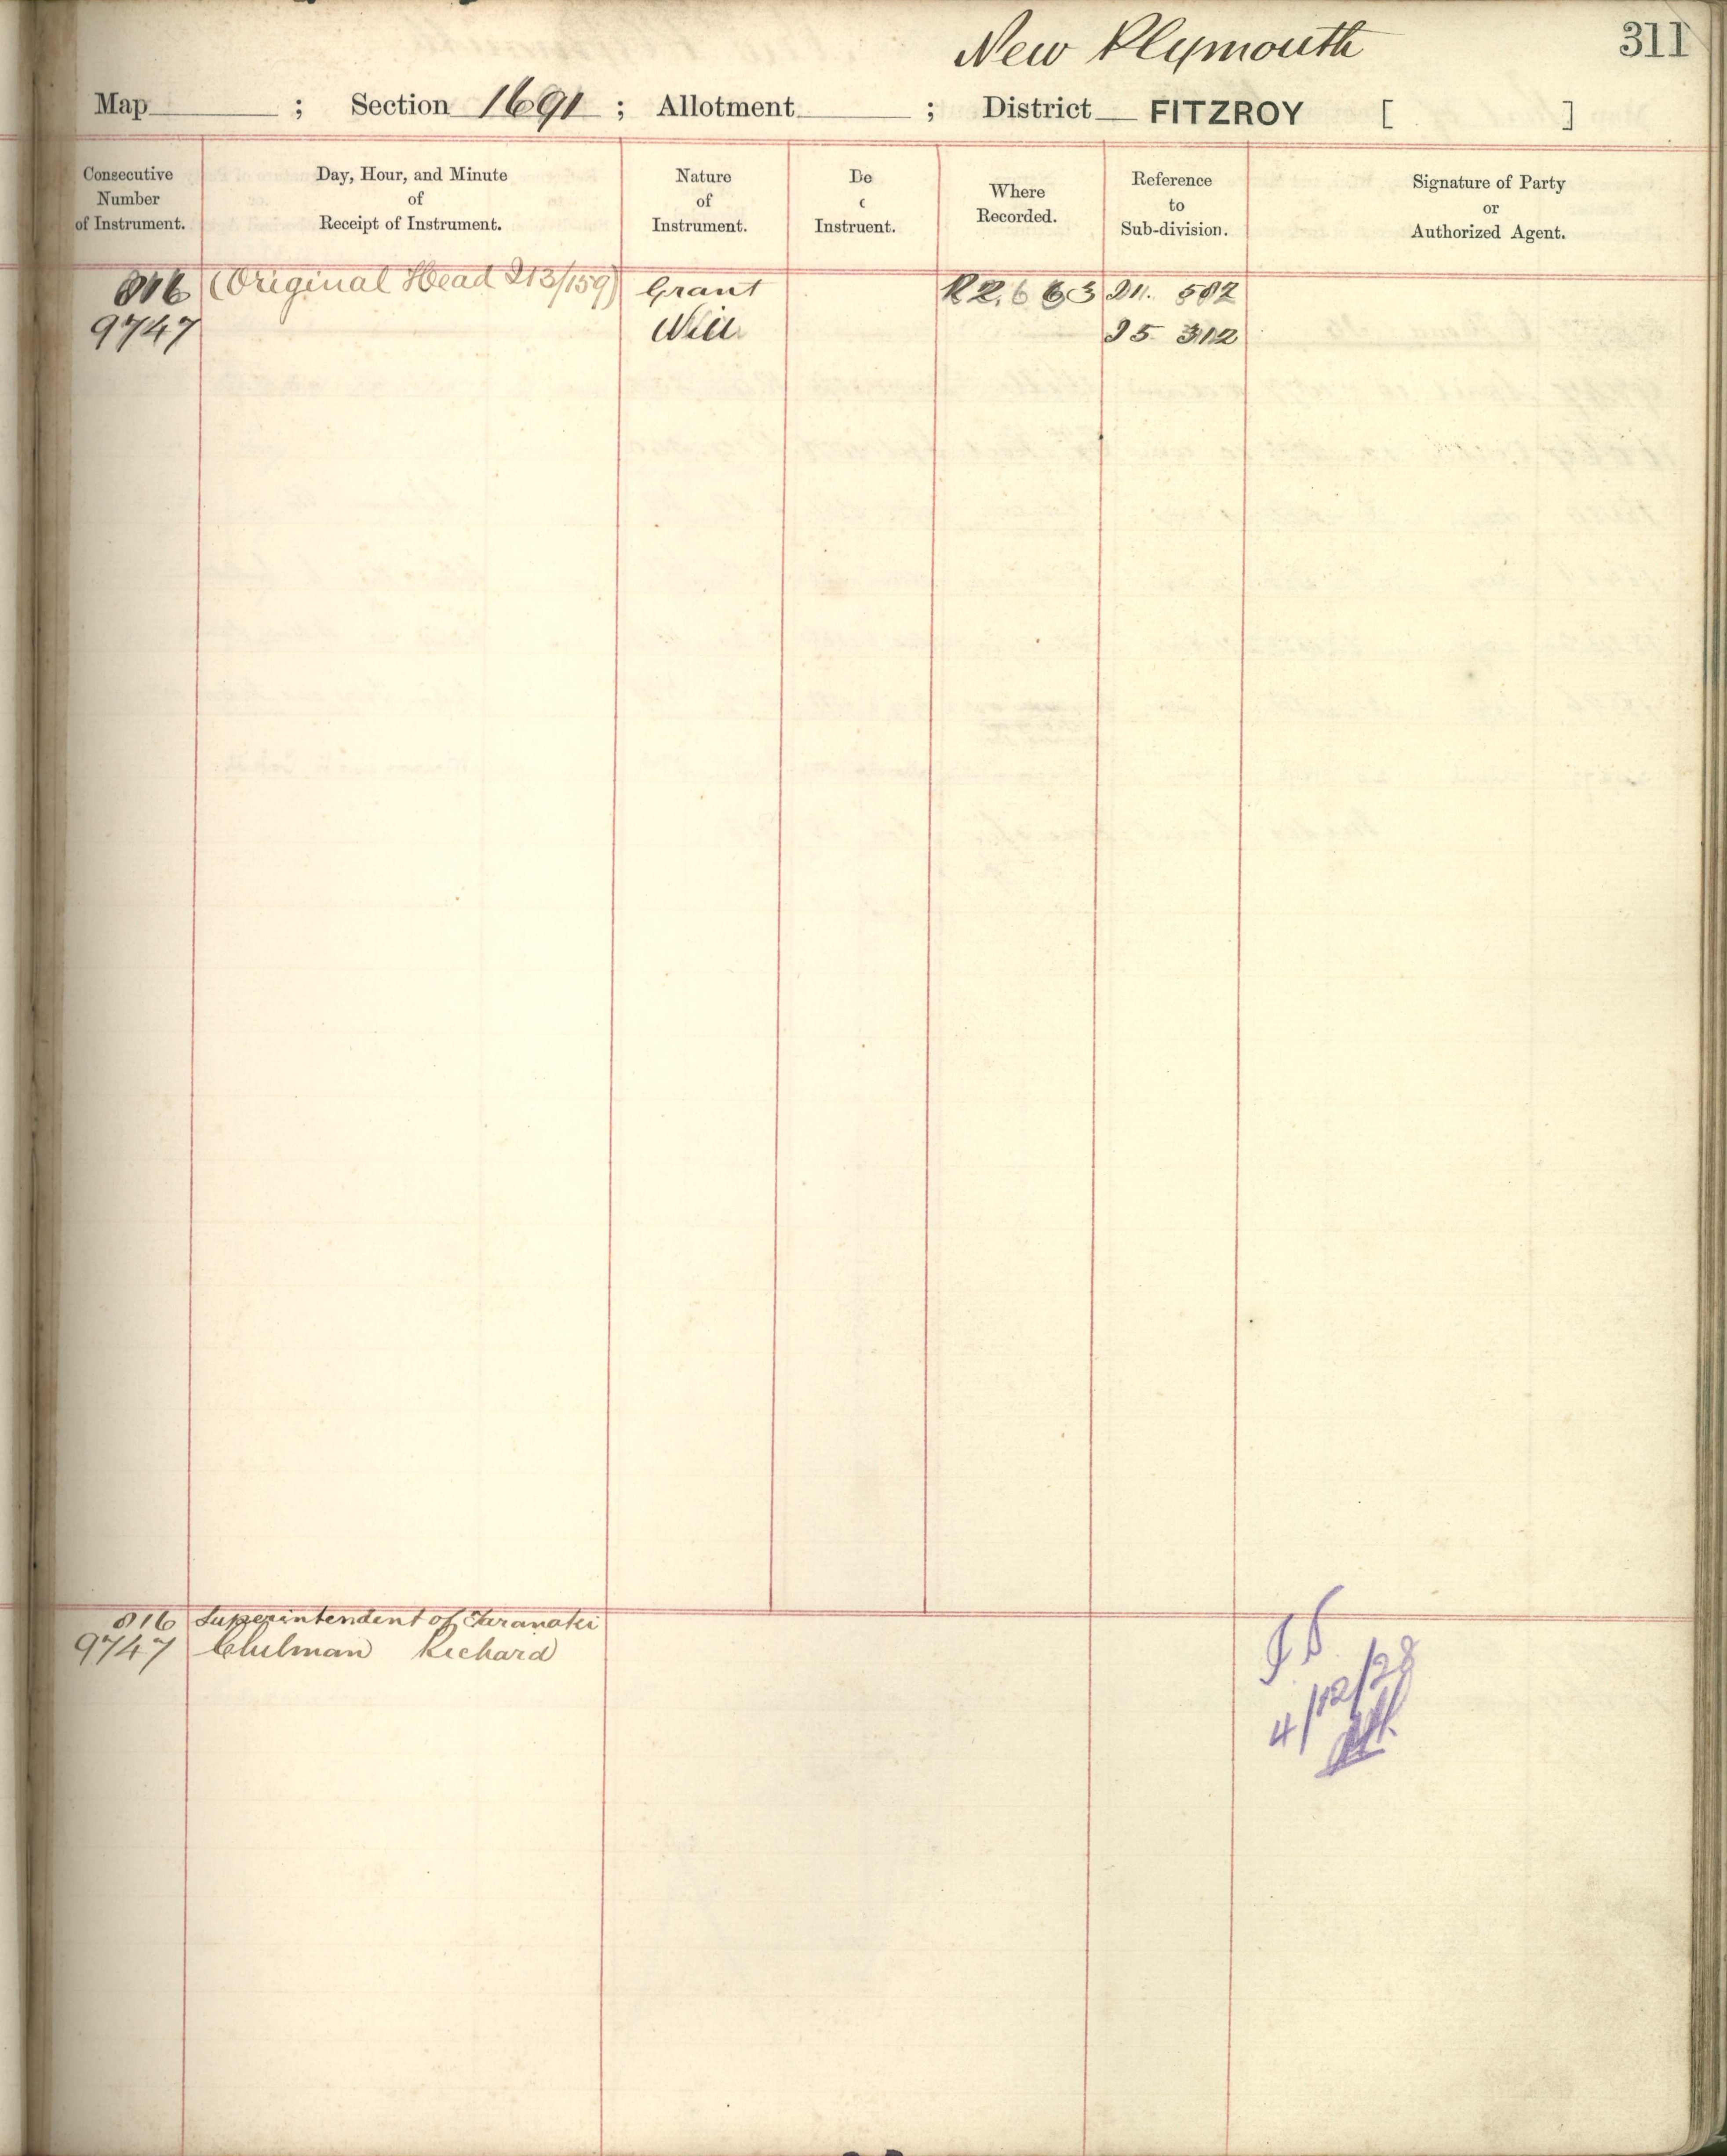 New Plymouth 311
Map ; Section 1691 ; Allotment ; District FITZROY [ ]
Consecutive Number of Instrument. Day, Hour, and Minute of Receipt of Instrument. Nature of Instrument. De c Instruent. Where Recorded. Reference to Sub-division. Signature of Party or Authorized Agent.
816 (Original Head 213/159) Grant R2. 663 D11. 582
9747 Will D5 312
816 Superintendent of Taranaki
9747 Chilman Richard
4/12/28